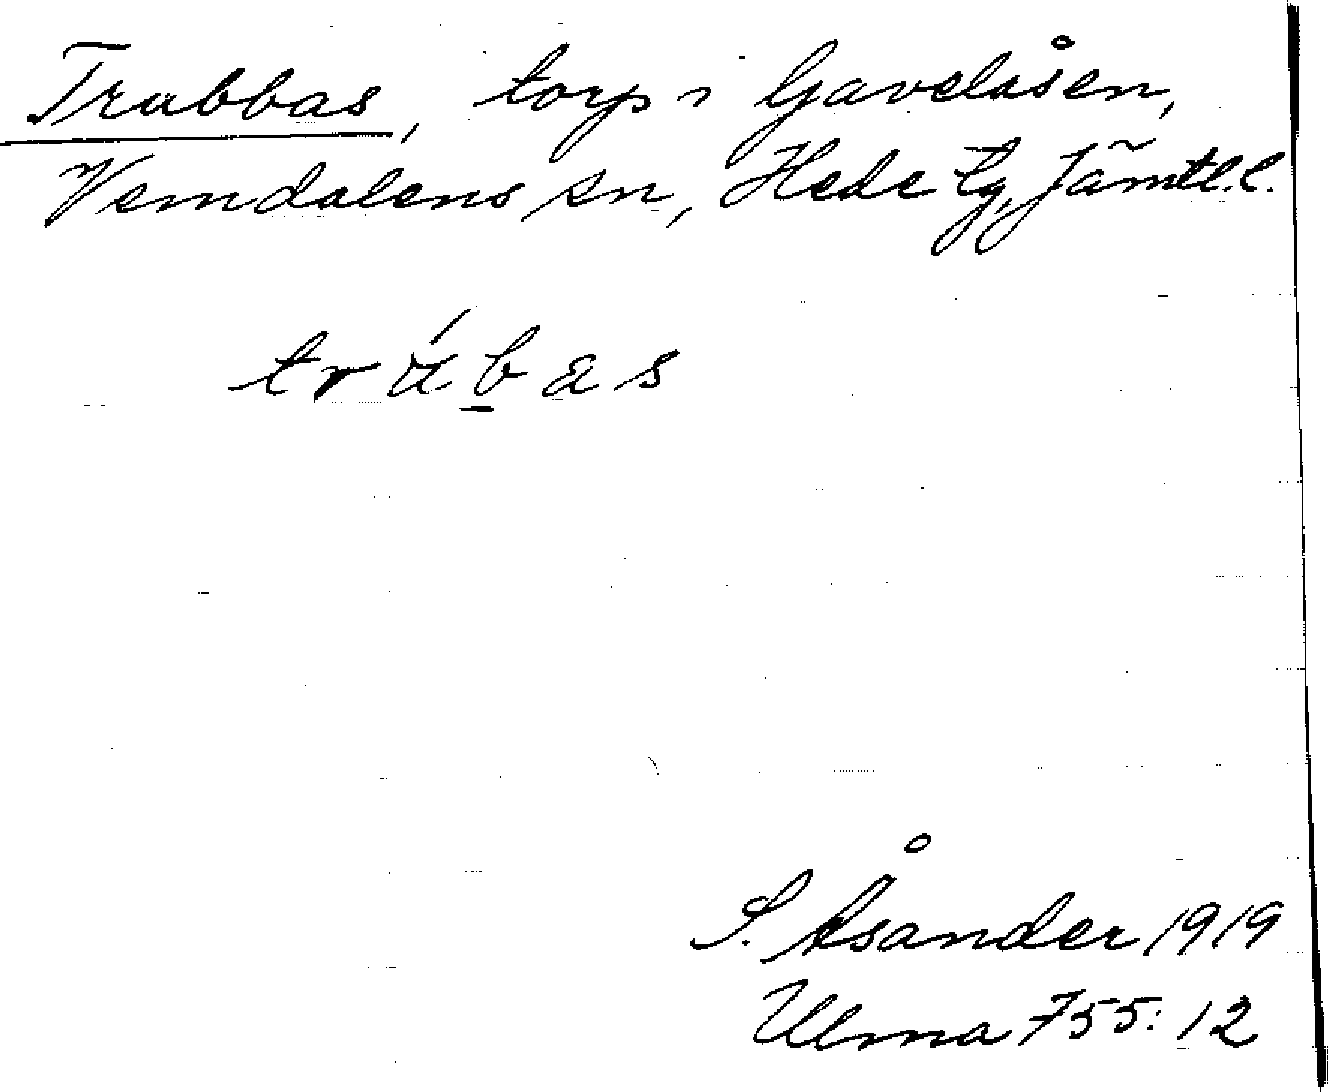 Trabbas, torp i Gavelåsen,
Vemdalens sn, Hede tg, Jämtl.l.
trábas
S. Åsander 1919
Ulma 755:12